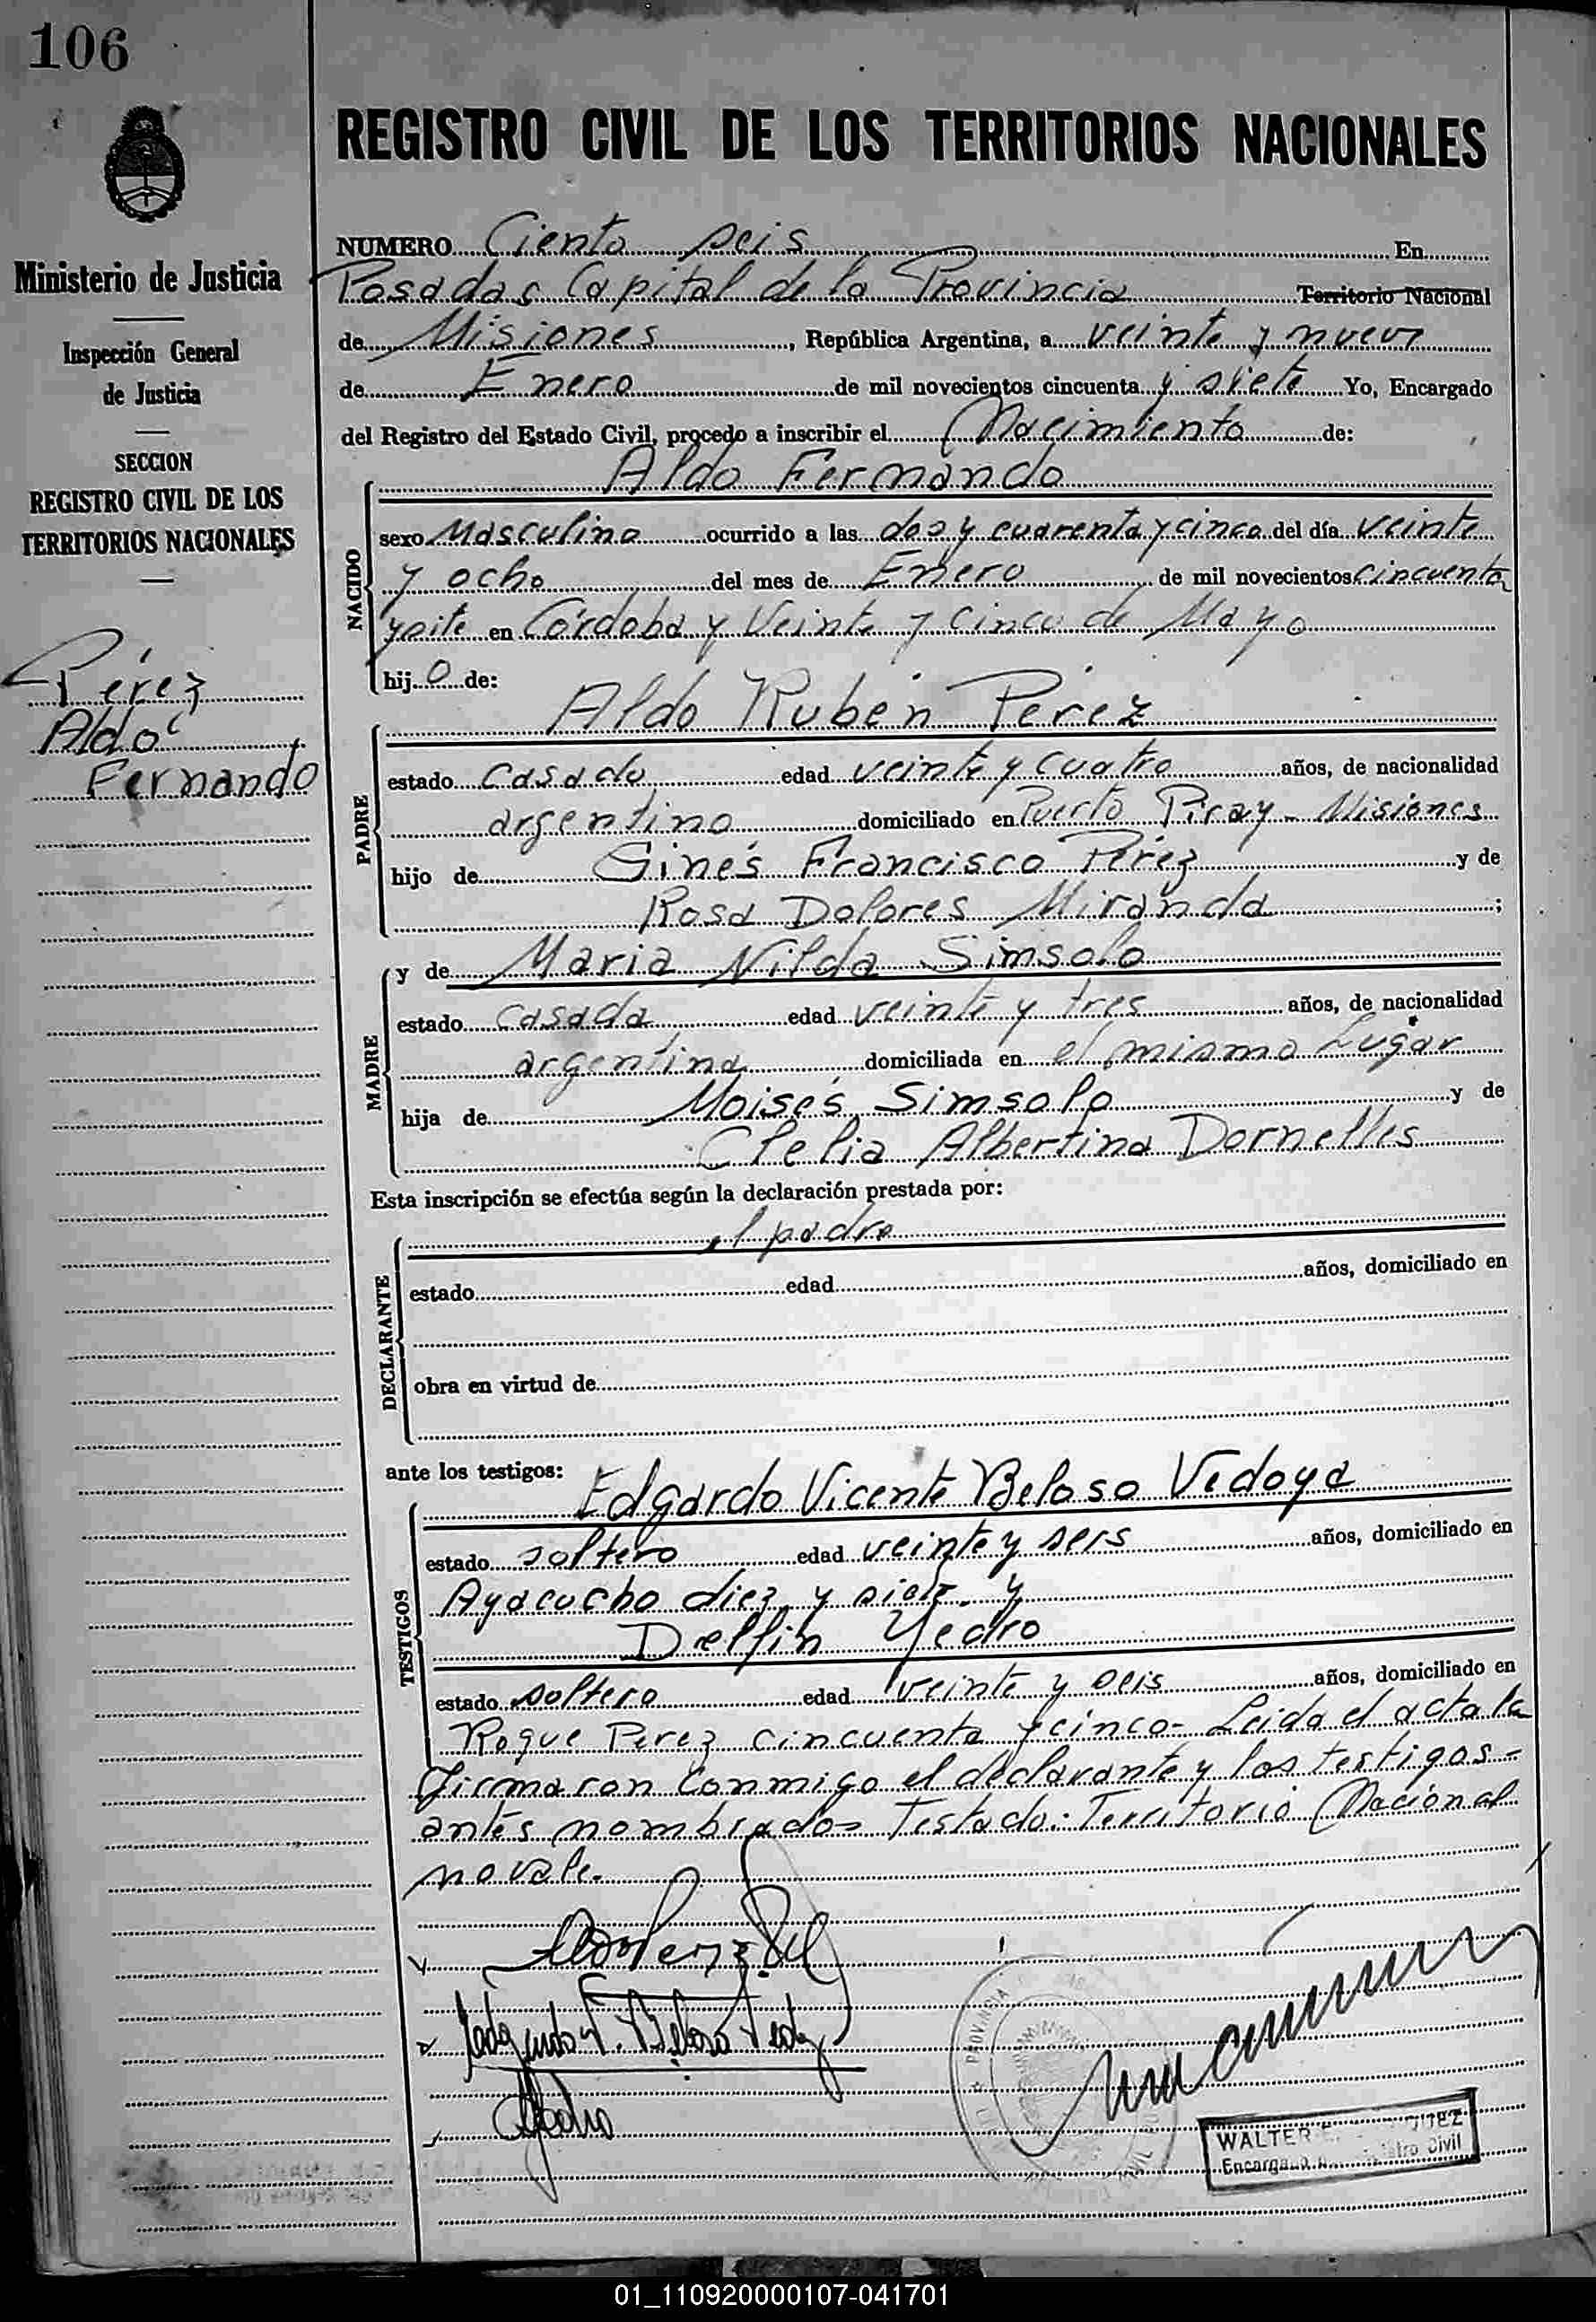 106
REGISTRO CIVIL DE LOS TERRITORIOS NACIONALES
Ministerio de Justicia
Inspección General
de Justicia
SECCION
REGISTRO CIVIL DE LOS
TERRITORIOS NACIONALES
Pérez
Aldo
Fernando
NUMERO Ciento seis En
Posadas Capital de la Provincia Territorio Nacional
de Misiones, República Argentina, a veinte y nueve
de Enero de mil novecientos cincuenta y siete Yo, Encargado
del Registro del Estado Civil, procedo a inscribir el Nacimiento de:
Aldo Fernando
NACIDO
sexo Masculino ocurrido a las dos y cuarenta y cinco del día veinte
y ocho del mes de Enero de mil novecientos cincuenta
en Córdoba y Veinte y Cinco de Mayo
hijo de:
Aldo Rubén Pérez
PADRE
estado casado edad veinte y cuatro años, de nacionalidad
argentino domiciliado en Puerto Piray - Misiones
hijo de Ginés Francisco Pérez y de
Rosa Dolores Miranda;
y de Maria Nilda Simsolo
MADRE
estado casada edad veinte y tres años, de nacionalidad
argentina domiciliada en el mismo Lugar
hija de Moisés Simsolo y de
Clelia Albertina Dornelles
Esta inscripción se efectúa según la declaración prestada por:
el padre
DECLARANTE
estado edad años, domiciliado en
obra en virtud de
ante los testigos:
Edgardo Vicente Beloso Vedoya
TESTIGOS
estado soltero edad veinte y seis años, domiciliado en
Ayacucho diez y siete y
Delfin Yedro
estado soltero edad veinte y seis años, domiciliado en
Roque Perez cincuenta y cinco- Leida el acta la
firmaron conmigo el declarante y los testigos-
antes nombrados Testado: Territorio Nacional
no vale.
Edgardo V. Beloso Vedoya
PROVINCIA
WALTER
Civil
01_110920000107-041701